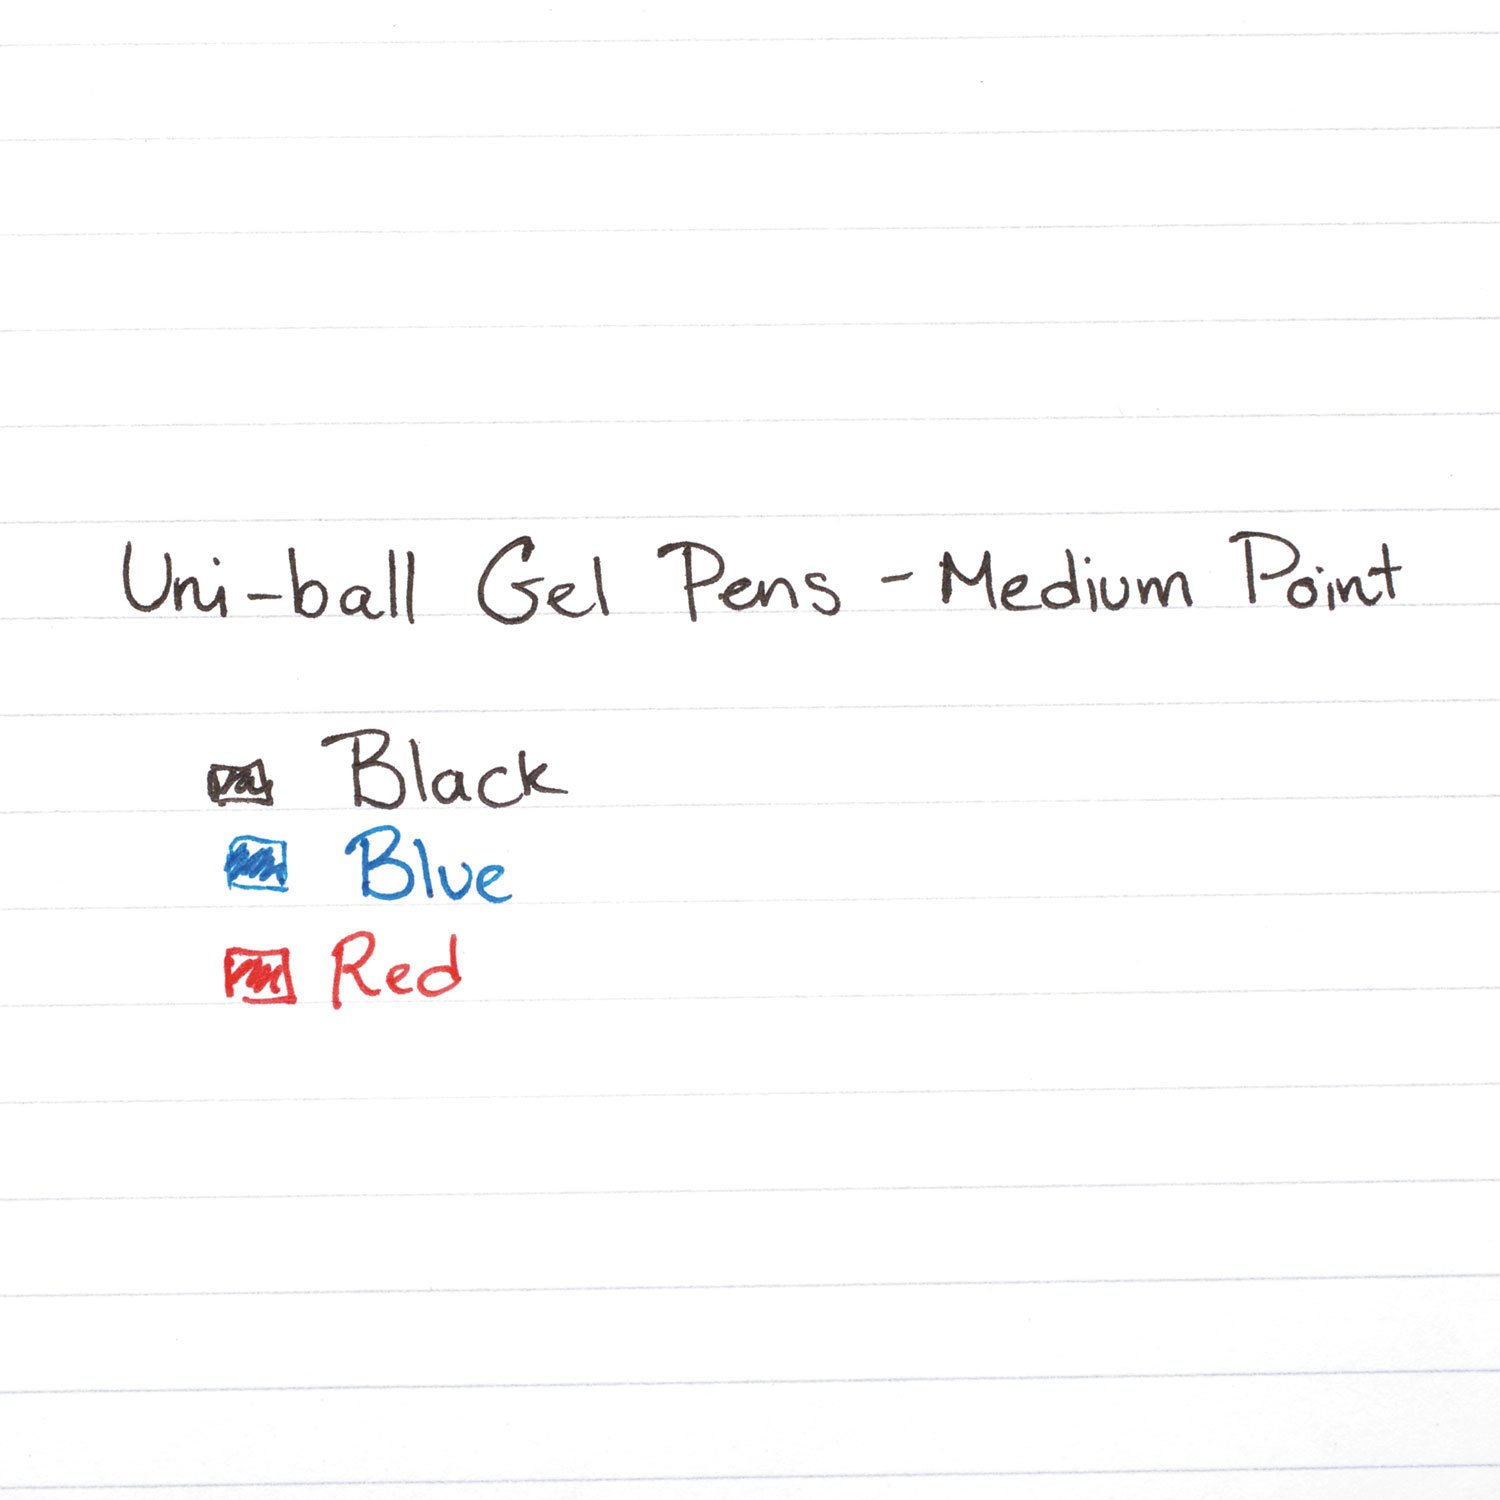 Uni-ball Gel Pens - Medium Point
Black
Blue
Red